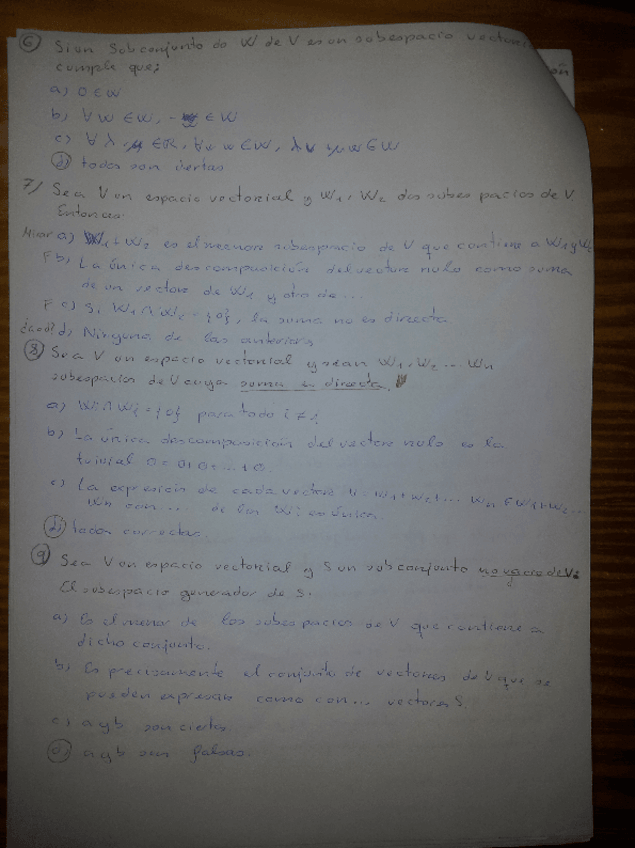 6) Si un subconjunto do W de V es un subespacio vectorial
cumple que:
a) 0 ∈ W
b) ∀ w ∈ W, - ∈ W
c) ∀ λ, μ ∈ R, ∀ v, w ∈ W, λ v μ w ∈ W
d) todas son ciertas
7) Sea V un espacio vectorial y W1, W2 dos subespacios de V
Entonces:
a) W1 + W2 es el menor subespacio de V que contiene a W1 y W2
F b) La única descomposición del vector nulo como suma
de un vector de W1 y otro de ...
F c) Si W1 ∩ W2 = {0}, la suma no es directa
d) Ninguna de las anteriores
8) Sea V un espacio vectorial y sean W1, W2 ... Wn
subespacios de V cuya suma es directa.
a) Wi ∩ Wj = {0} para todo i ≠ j
b) La única descomposición del vector nulo es la
trivial 0 = 0+0+...+0
c) La expresión de cada vector W1+W2+... ∈ W1+W2...
con ... de los Wi es única.
d) Todas correctas.
9) Sea V un espacio vectorial y S un subconjunto no vacio de V:
El subespacio generador de S.
a) Es el menor de los subespacios de V que contiene a
dicho conjunto.
b) Es precisamente el conjunto de vectores de V que se
pueden expresar como con... vectores S.
c) a y b son ciertas
d) a y b son falsas.